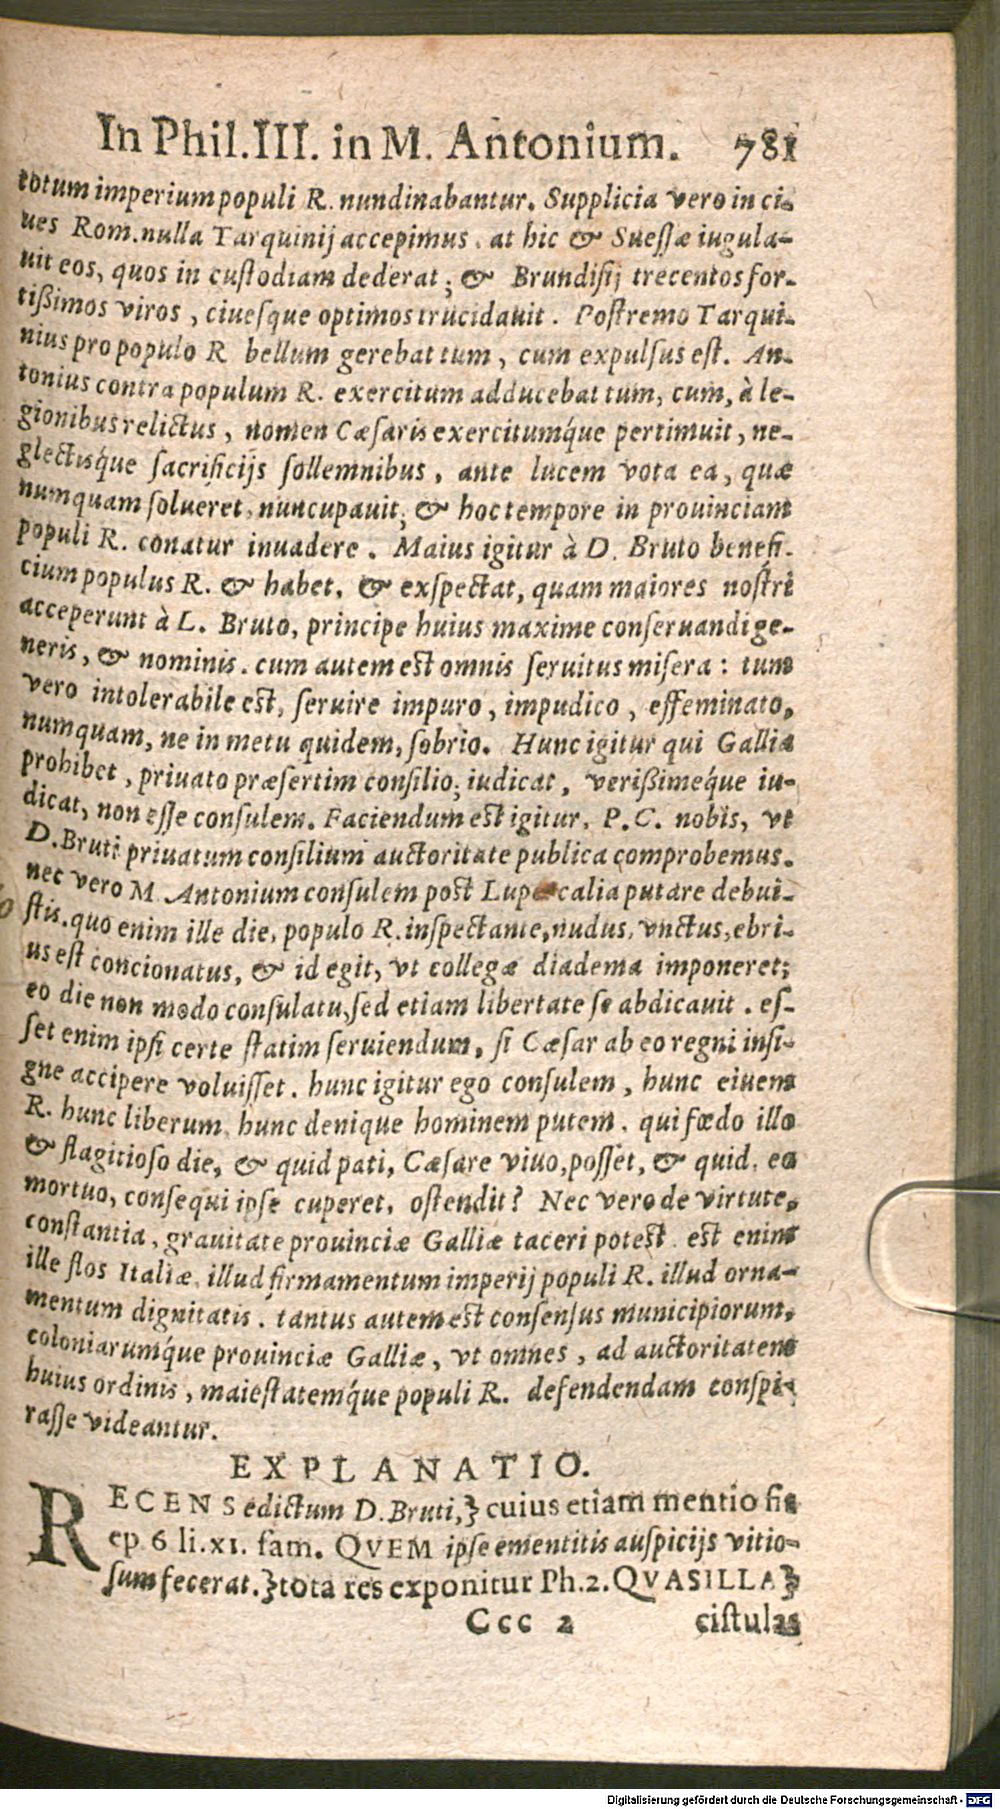 In Phil. III. in M. Antonium. 781
totum imperium populi R. nundinabantur. Supplicia vero in ci-
ues Rom. nulla Tarquinij accepimus. at hic & Suessæ iugula-
uit eos, quos in custodiam dederat; & Brundisij trecentos for-
tißimos viros, ciuesque optimos trucidauit. Postremo Tarqui-
nius pro populo R bellum gerebat tum, cum expulsus est. An-
tonius contra populum R. exercitum adducebat tum, cum, à le-
gionibus relictus, nomen Cæsaris exercitumq́ue pertimuit, ne-
glectisq́ue sacrificijs sollemnibus, ante lucem vota ea, quæ
numquam solueret, nuncupauit; & hoc tempore in prouinciam
populi R. conatur inuadere. Maius igitur à D. Bruto benefi-
cium populus R. & habet, & exspectat, quam maiores nostri
acceperunt à L. Bruto, principe huius maxime conseruandi ge-
neris, & nominis. cum autem est omnis seruitus misera: tum
vero intolerabile est, seruire impuro, impudico, effeminato,
numquam, ne in metu quidem, sobrio. Hunc igitur qui Gallia
prohibet, priuato præsertim consilio, iudicat, verißimeq́ue iu-
dicat, non esse consulem. Faciendum est igitur, P.C. nobis, vt
D. Bruti priuatum consilium auctoritate publica comprobemus.
nec vero M. Antonium consulem post Lupercalia putare debui-
stis. quo enim ille die, populo R. inspectante, nudus, vnctus, ebri-
us est concionatus, & id egit, vt collegæ diadema imponeret;
eo die non modo consulatu, sed etiam libertate se abdicauit. es-
set enim ipsi certe statim seruiendum, si Cæsar ab eo regni insi-
gne accipere voluisset. hunc igitur ego consulem, hunc ciuem
R. hunc liberum, hunc denique hominem putem, qui fœdo illo
& flagitioso die, & quid pati, Cæsare viuo, posset, & quid, eo
mortuo, consequi ipse cuperet, ostendit? Nec vero de virtute,
constantia, grauitate prouinciæ Galliæ taceri potest. est enim
ille flos Italiæ, illud firmamentum imperij populi R. illud orna-
mentum dignitatis. tantus autem est consensus municipiorum,
coloniarumq́ue prouinciæ Galliæ, vt omnes, ad auctoritatem
huius ordinis, maiestatemq́ue populi R. defendendam conspi-
rasse videantur.
EXPLANATIO.
RECENS edictum D. Bruti,} cuius etiam mentio fit
ep. 6 li. XI. fam. QVEM ipse ementitis auspicijs vitio-
sum fecerat.} tota res exponitur Ph. 2. QVASILLA}
Ccc 2 cistulas
Digitalisierung gefördert durch die Deutsche Forschungsgemeinschaft - DFG